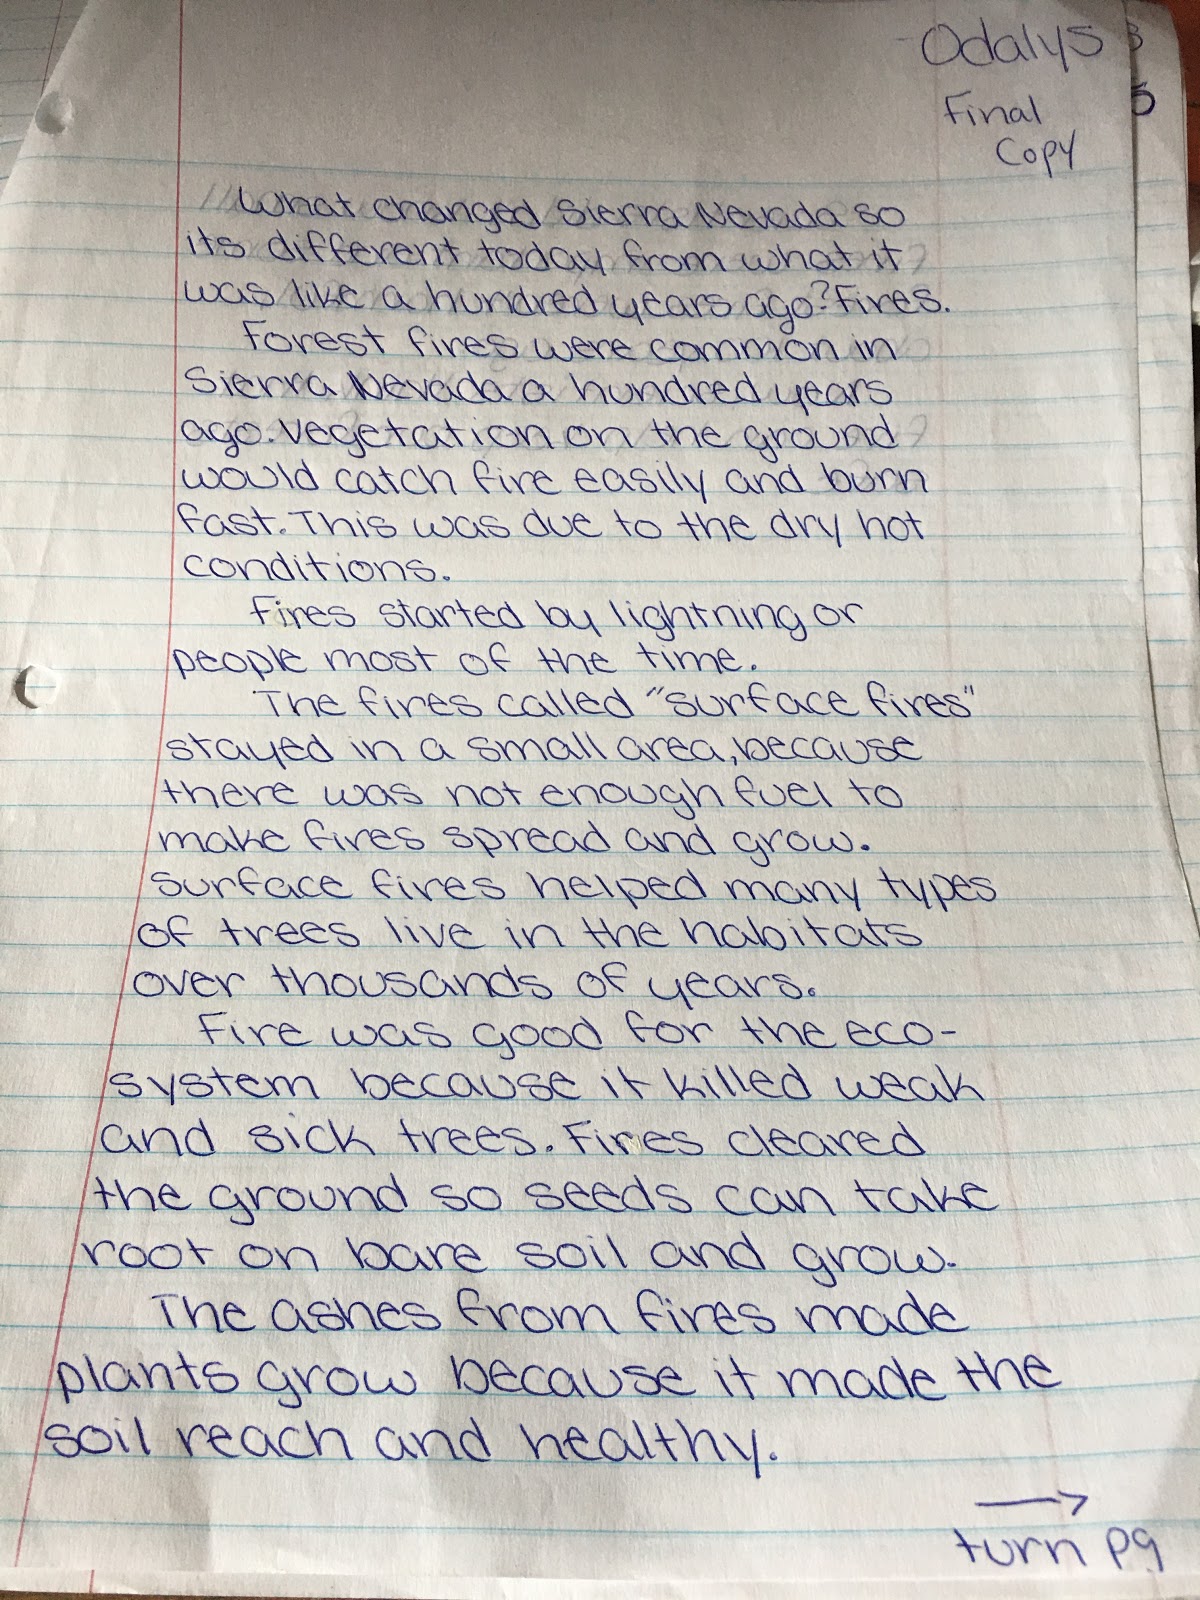 Odalys
Final
Copy
What changed Sierra Nevada so
its different today from what it
was like a hundred years ago? Fires.
Forest fires were common in
Sierra Nevada a hundred years
ago. Vegetation on the ground
would catch fire easily and burn
fast. This was due to the dry hot
conditions.
Fires started by lightning or
people most of the time.
The fires called "surface fires"
stayed in a small area, because
there was not enough fuel to
make fires spread and grow.
Surface fires helped many types
of trees live in the habitats
over thousands of years.
Fire was good for the eco-
system because it killed weak
and sick trees. Fires cleared
the ground so seeds can take
root on bare soil and grow.
The ashes from fires made
plants grow because it made the
soil reach and healthy.
→
turn pg